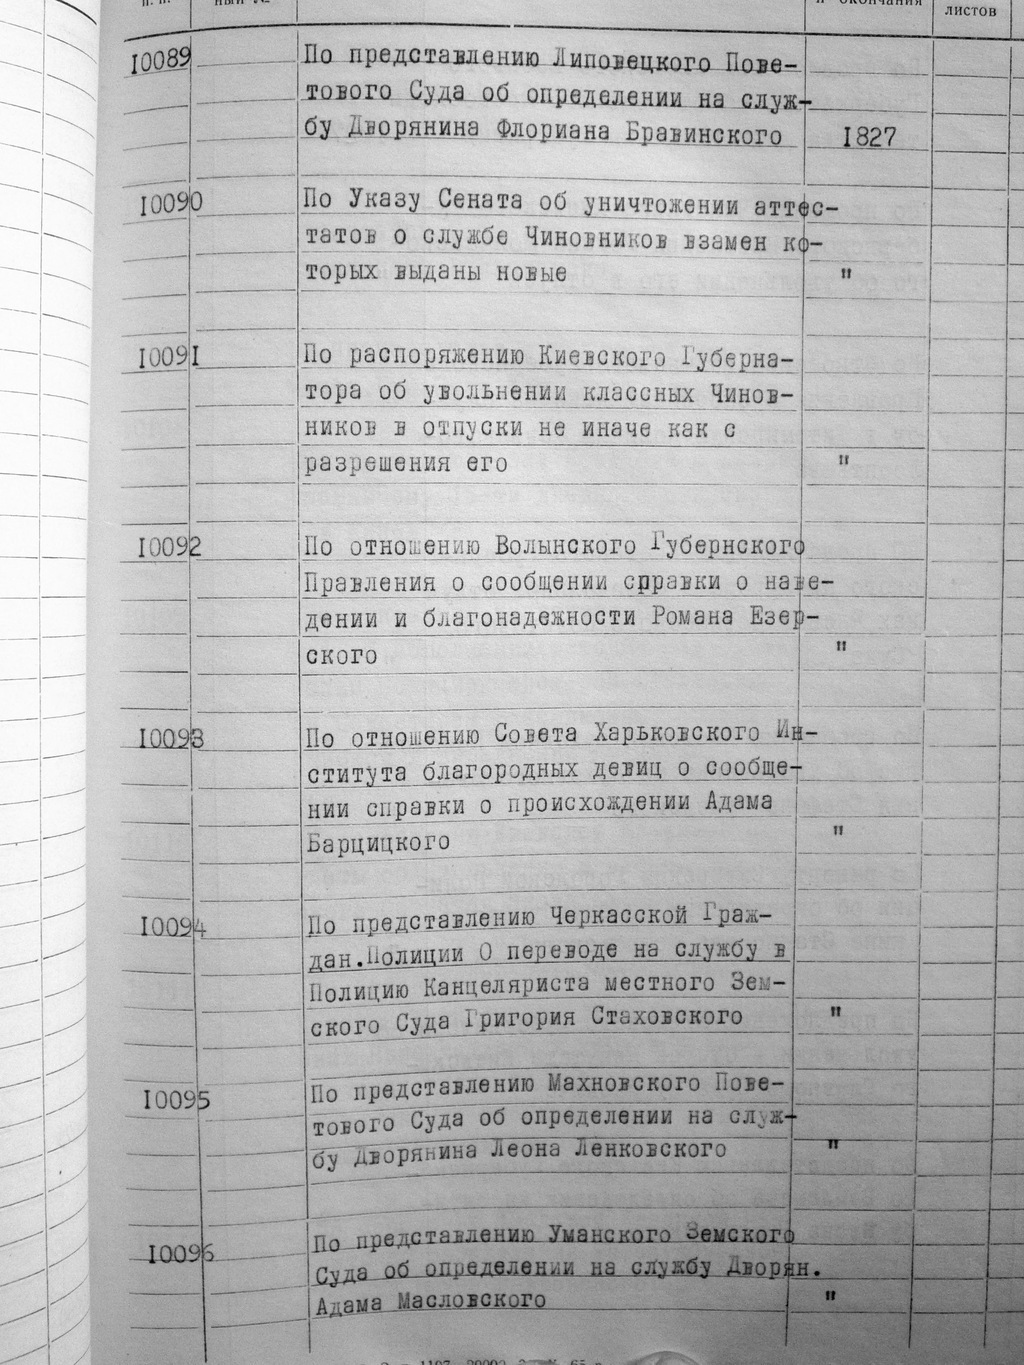 п.п.
ный №
и окончания
листов
10089
По представлению Липовецкого Пове-
тового Суда об определении на служ-
бу Дворянина Флориана Бравинского
1827
10090
По Указу Сената об уничтожении аттес-
татов о службе Чиновников взамен ко-
торых выданы новые
"
10091
По распоряжению Киевского Губерна-
тора об увольнении классных Чинов-
ников в отпуски не иначе как с
разрешения его
"
10092
По отношению Волынского Губернского
Правления о сообщении справки о наве-
дении и благонадежности Романа Езер-
ского
"
10093
По отношению Совета Харьковского Ин-
ститута благородных девиц о сообще-
нии справки о происхождении Адама
Барцицкого
"
10094
По представлению Черкасской Граж-
дан.Полиции О переводе на службу в
Полицию Канцеляриста местного Зем-
ского Суда Григория Стаховского
"
10095
По представлению Махновского Пове-
тового Суда об определении на служ-
бу Дворянина Леона Ленковского
"
10096
По представлению Уманского Земского
Суда об определении на службу Дворян.
Адама Масловского
"